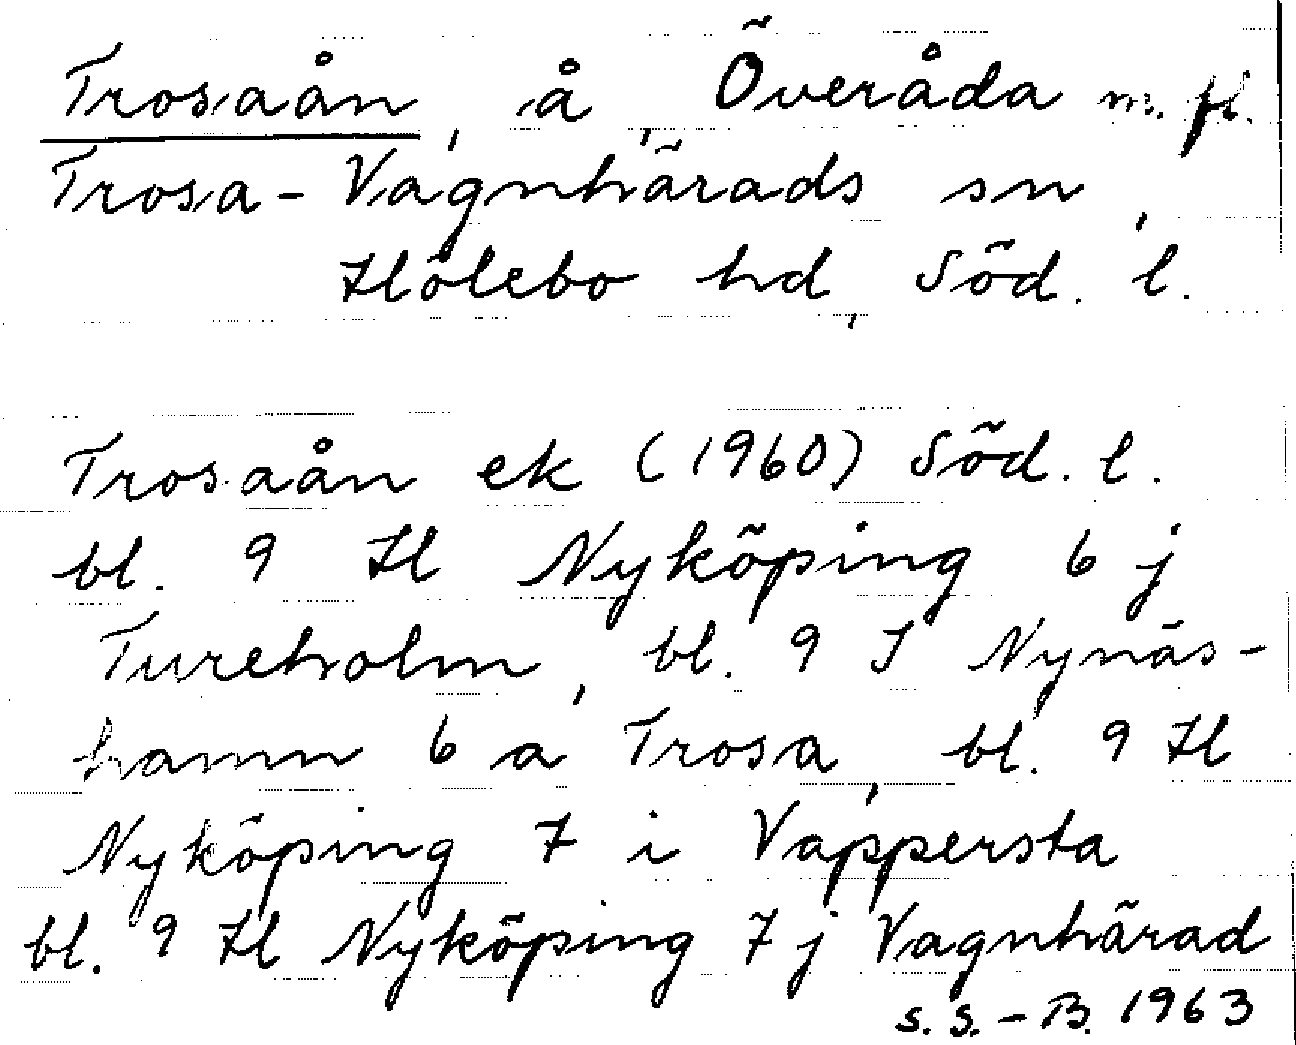 Trosaån, å, Överåda m.fl.
Trosa-Vagnhärads sn,
Hölebo hd, Söd. l.
Trosaån ek (1960) Söd. l.
bl. 9 H Nyköping 6 j
Tureholm, bl. 9 I Nynäs-
hamn 6 a Trosa, bl. 9 H
Nyköping 7 i Vappersta
bl. 9 H Nyköping 7 j Vagnhärad
S. S. - B. 1963